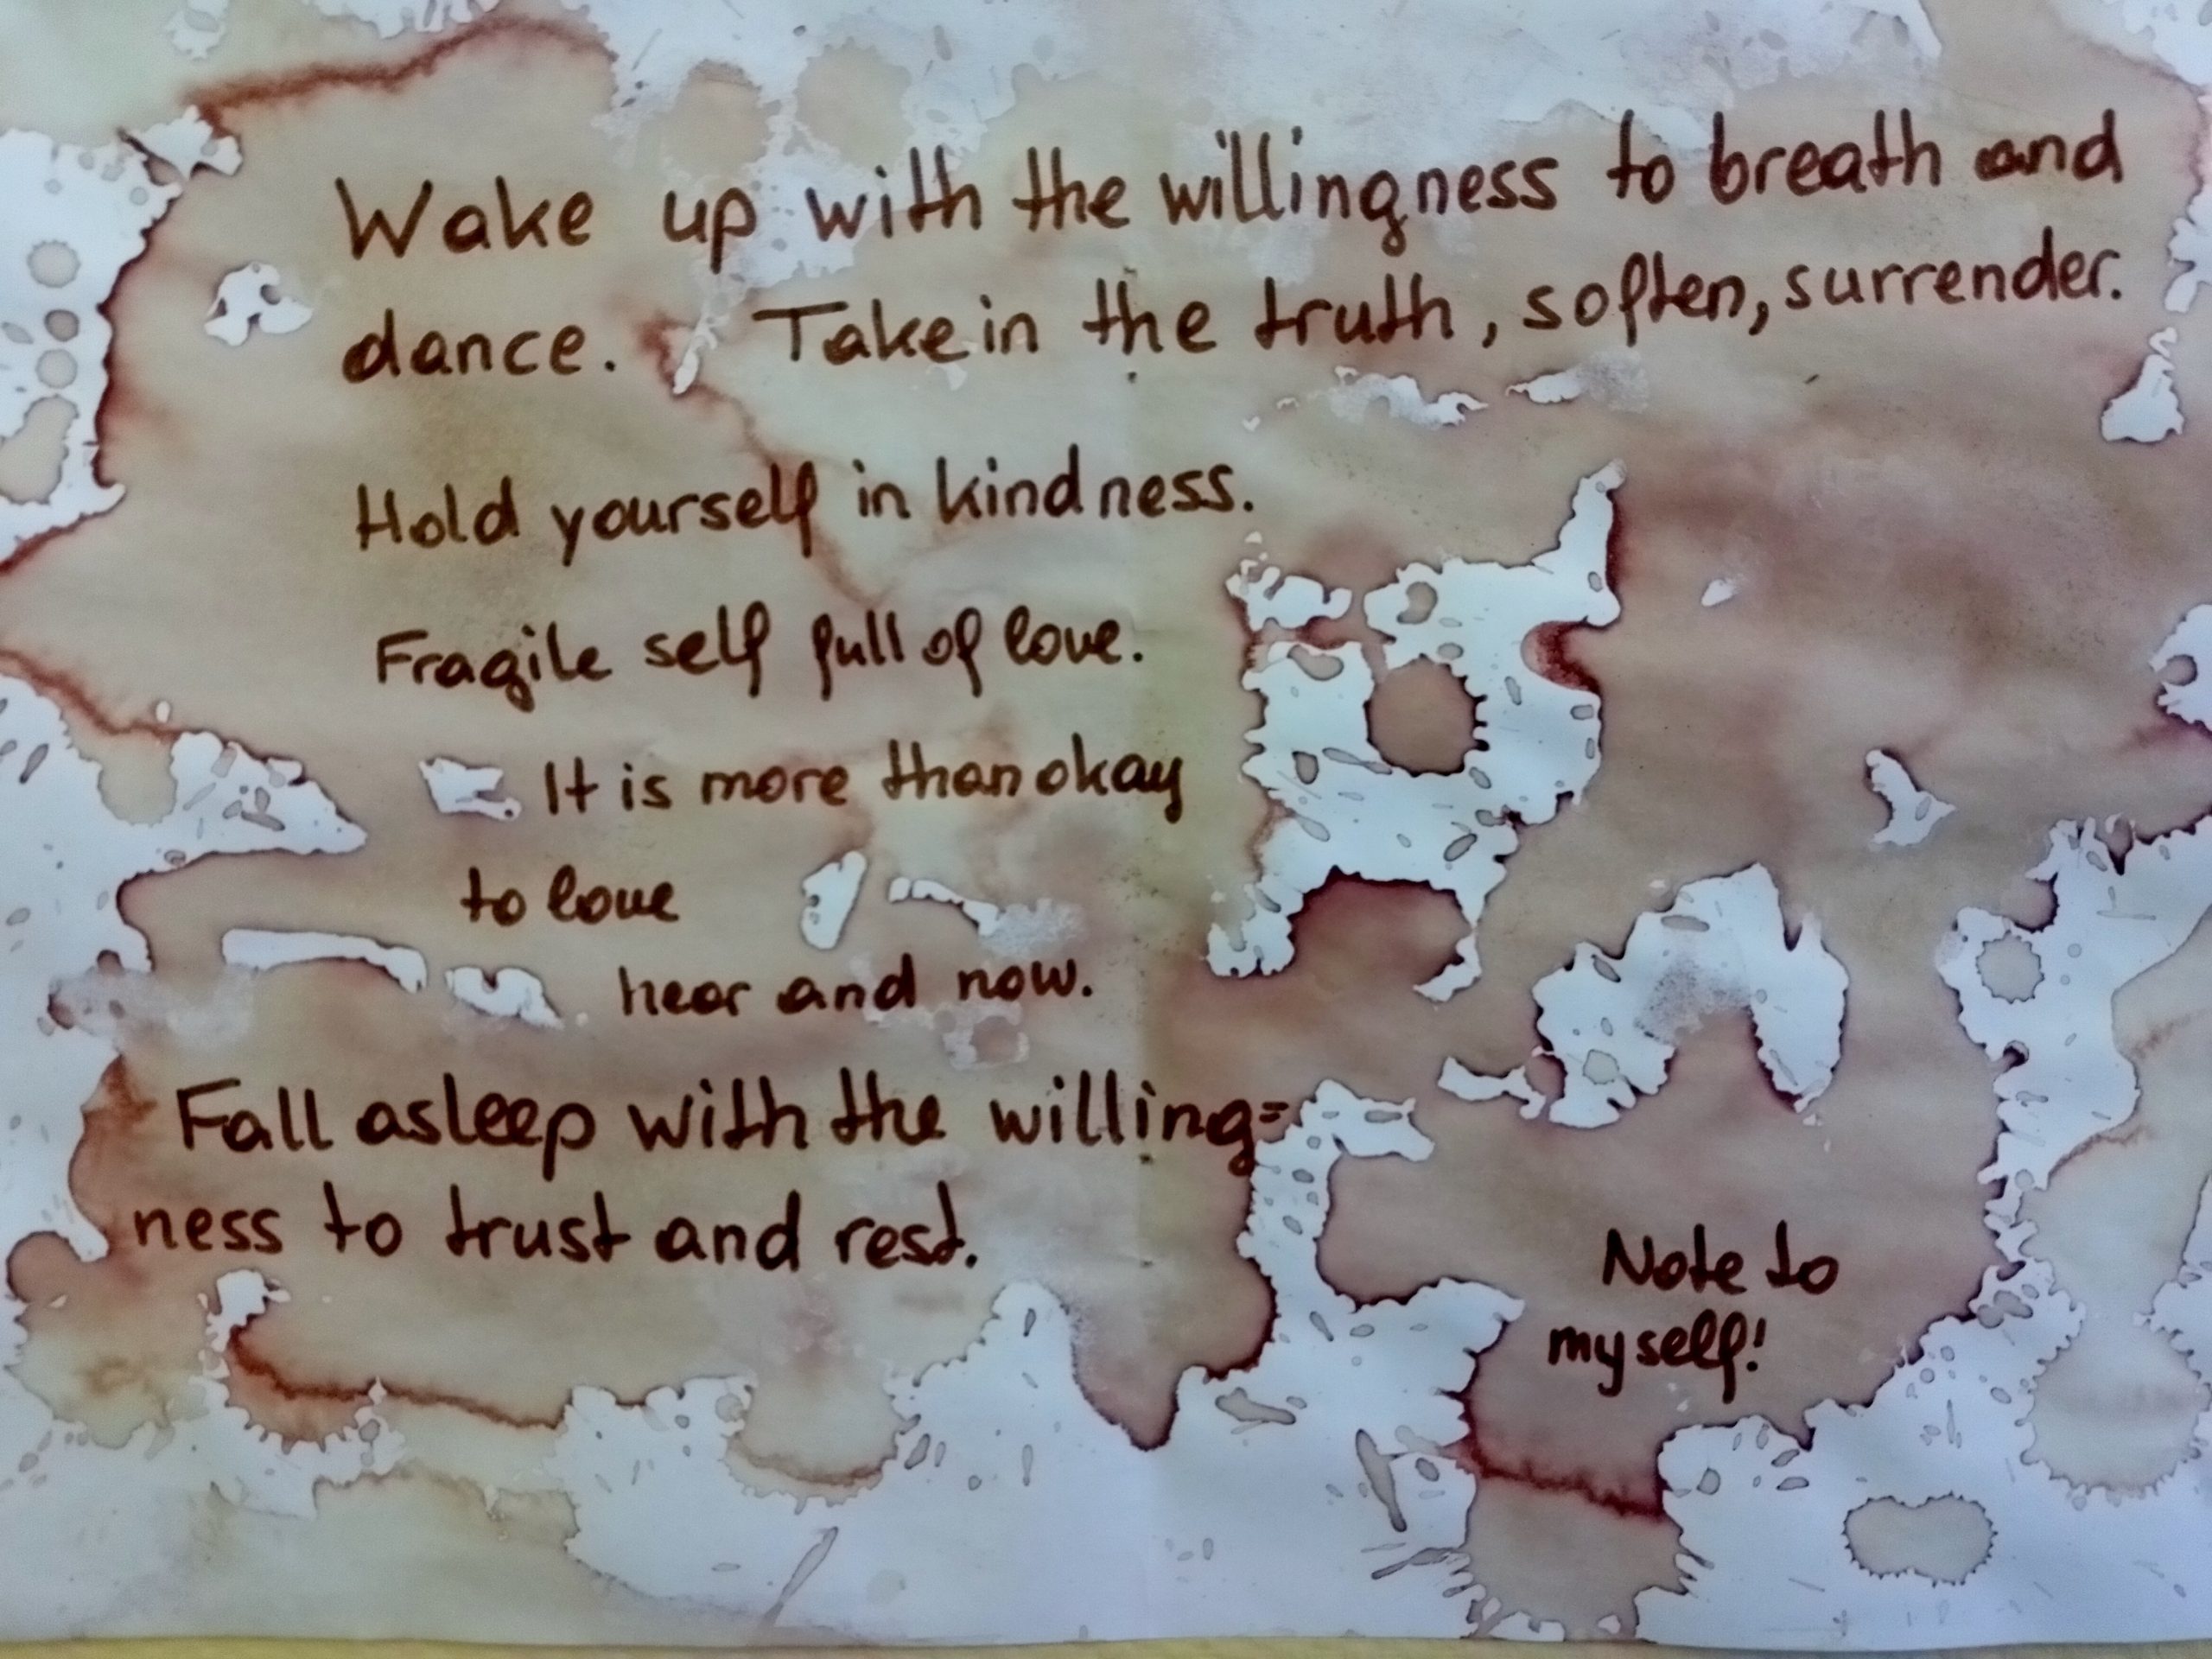 Wake up with the willingness to breath and
dance. Take in the truth, soften, surrender.
Hold yourself in kindness.
Fragile self full of love.
It is more than okay
to love
hear and now.
Fall asleep with the willing=
ness to trust and rest.
Note to
myself!